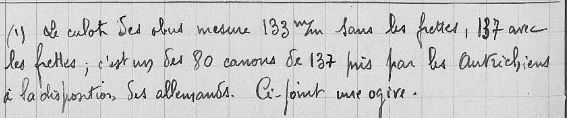 (1) Le culot des obus mesure 133 m/m sans les frettes, 137 avec
les frettes ; c'est un des 80 canons de 137 mis par les Autrichiens
à la disposition des allemands. Ci-joint une ogive.